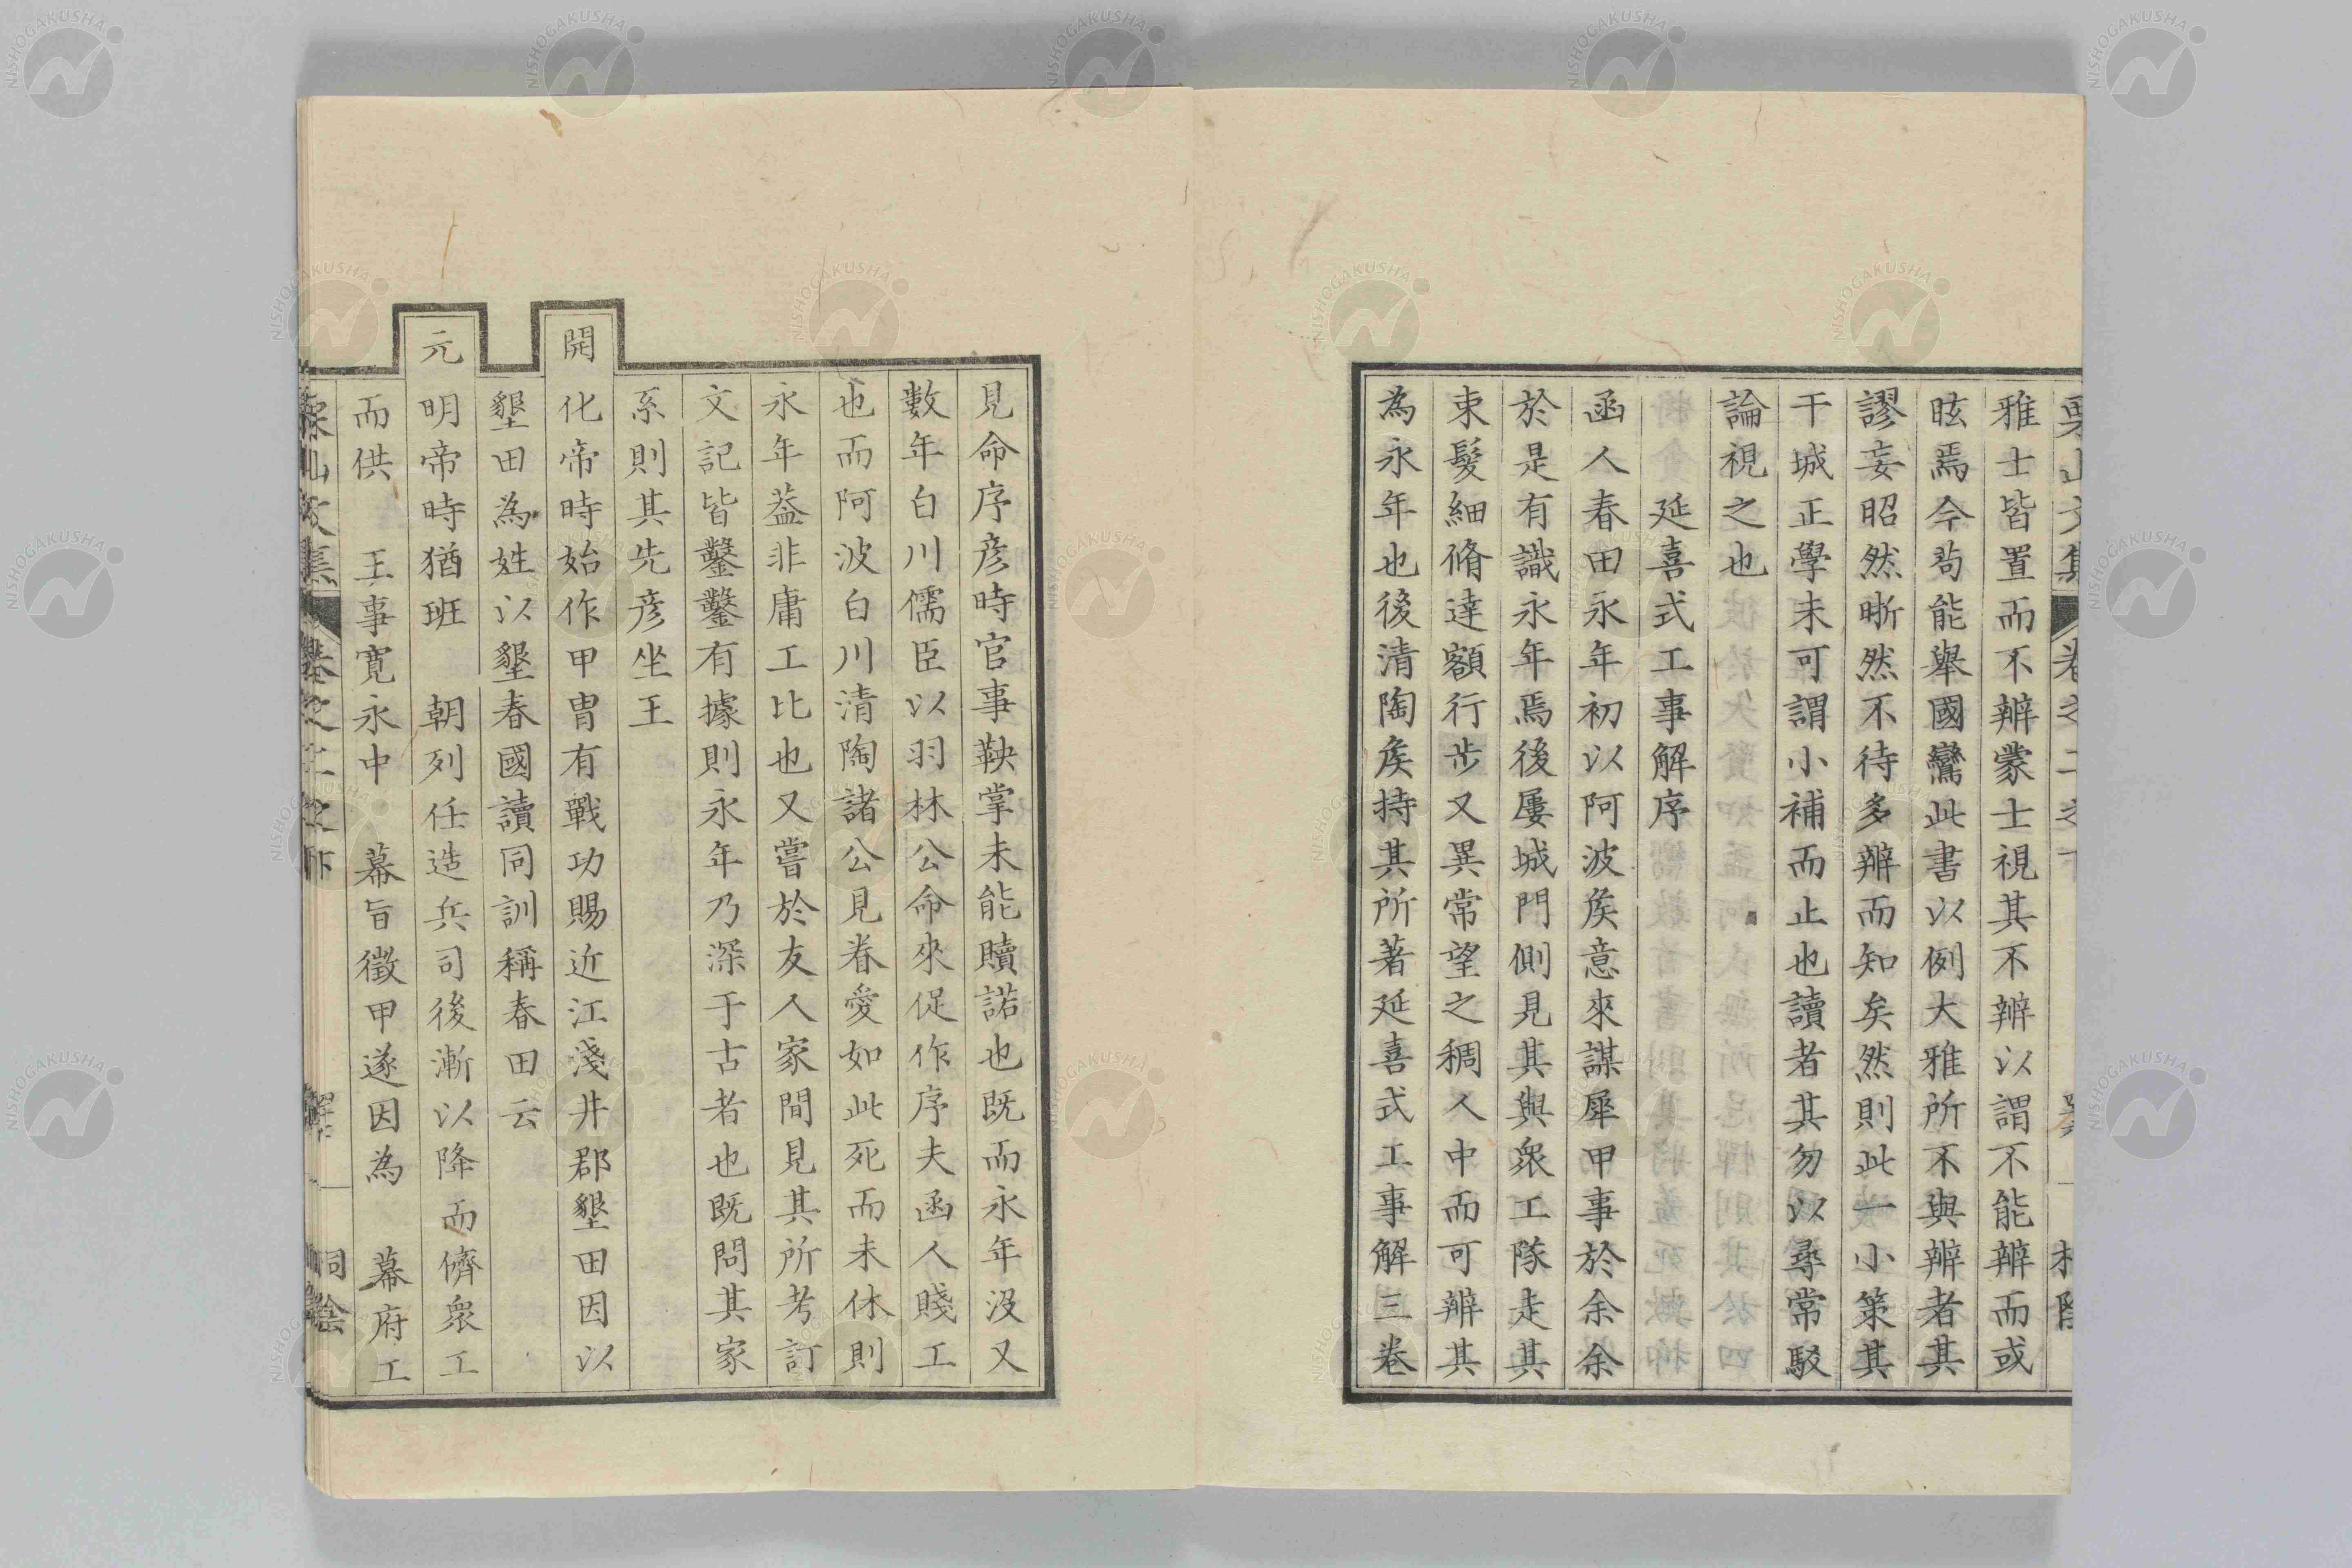 雅士皆置而不辨蒙士視其不辨以謂不能辨而或
眩焉今苟能舉國鸞此書以例大雅所不與辨者其
謬妄昭然晰然不待多辨而知矣然則此一小策其
干城正學未可謂小補而止也讀者其勿以尋常駁
論視之也
延喜式工事解序
函人春田永年初以阿波矦意來謀犀甲事於余余
於是有識永年焉後屢城門側見其與衆工隊走其
束髮細脩達額行步又異常望之稠人中而可辨其
為永年也後清陶矦持其所著延喜式工事解三卷
見命序彦時官事鞅掌未能贖諾也既而永年沒又
數年白川儒臣以羽林公命來促作序夫函人賤工
也而阿波白川清陶諸公見眷愛如此死而未休則
永年葢非庸工比也又嘗於友人家間見其所考訂
文記皆鑿鑿有據則永年乃深于古者也既問其家
系則其先彦坐王
開化帝時始作甲冑有戰功賜近江淺井郡墾田因以
墾田為姓以墾春國讀同訓稱春田云
元明帝時猶班 朝列任造兵司後漸以降而儕衆工
而供 王事寬永中 幕旨徵甲遂因為 幕府工